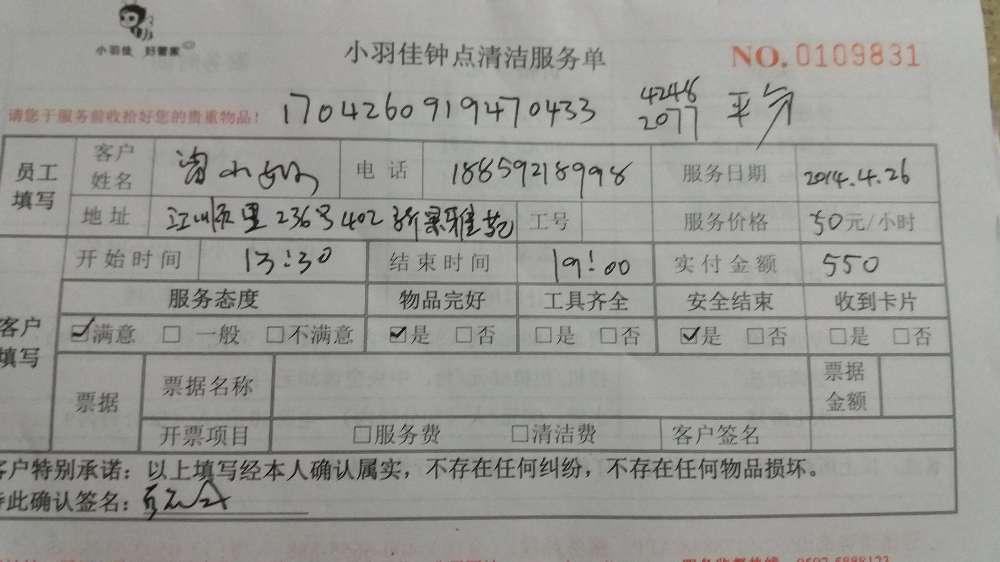 小羽佳 好管家
小羽佳钟点清洁服务单 NO.0109831
请您于服务前收拾好您的贵重物品! 1704260919470433 4248 2077
员工填写 客户姓名 电话 18859218998 服务日期 2014.4.26
地址 236号402 工号 服务价格 50元/小时
开始时间 13:30 结束时间 19:00 实付金额 550
客户填写 服务态度 物品完好 工具齐全 安全结束 收到卡片
☑满意 □一般 □不满意 ☑是 □否 □是 □否 ☑是 □否 □是 □否
票据 票据名称 票据金额
开票项目 □服务费 □清洁费 客户签名
客户特别承诺：以上填写经本人确认属实，不存在任何纠纷，不存在任何物品损坏。
特此确认签名：